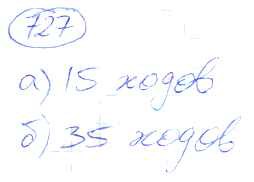 727
а) 15 ходов
б) 35 ходов